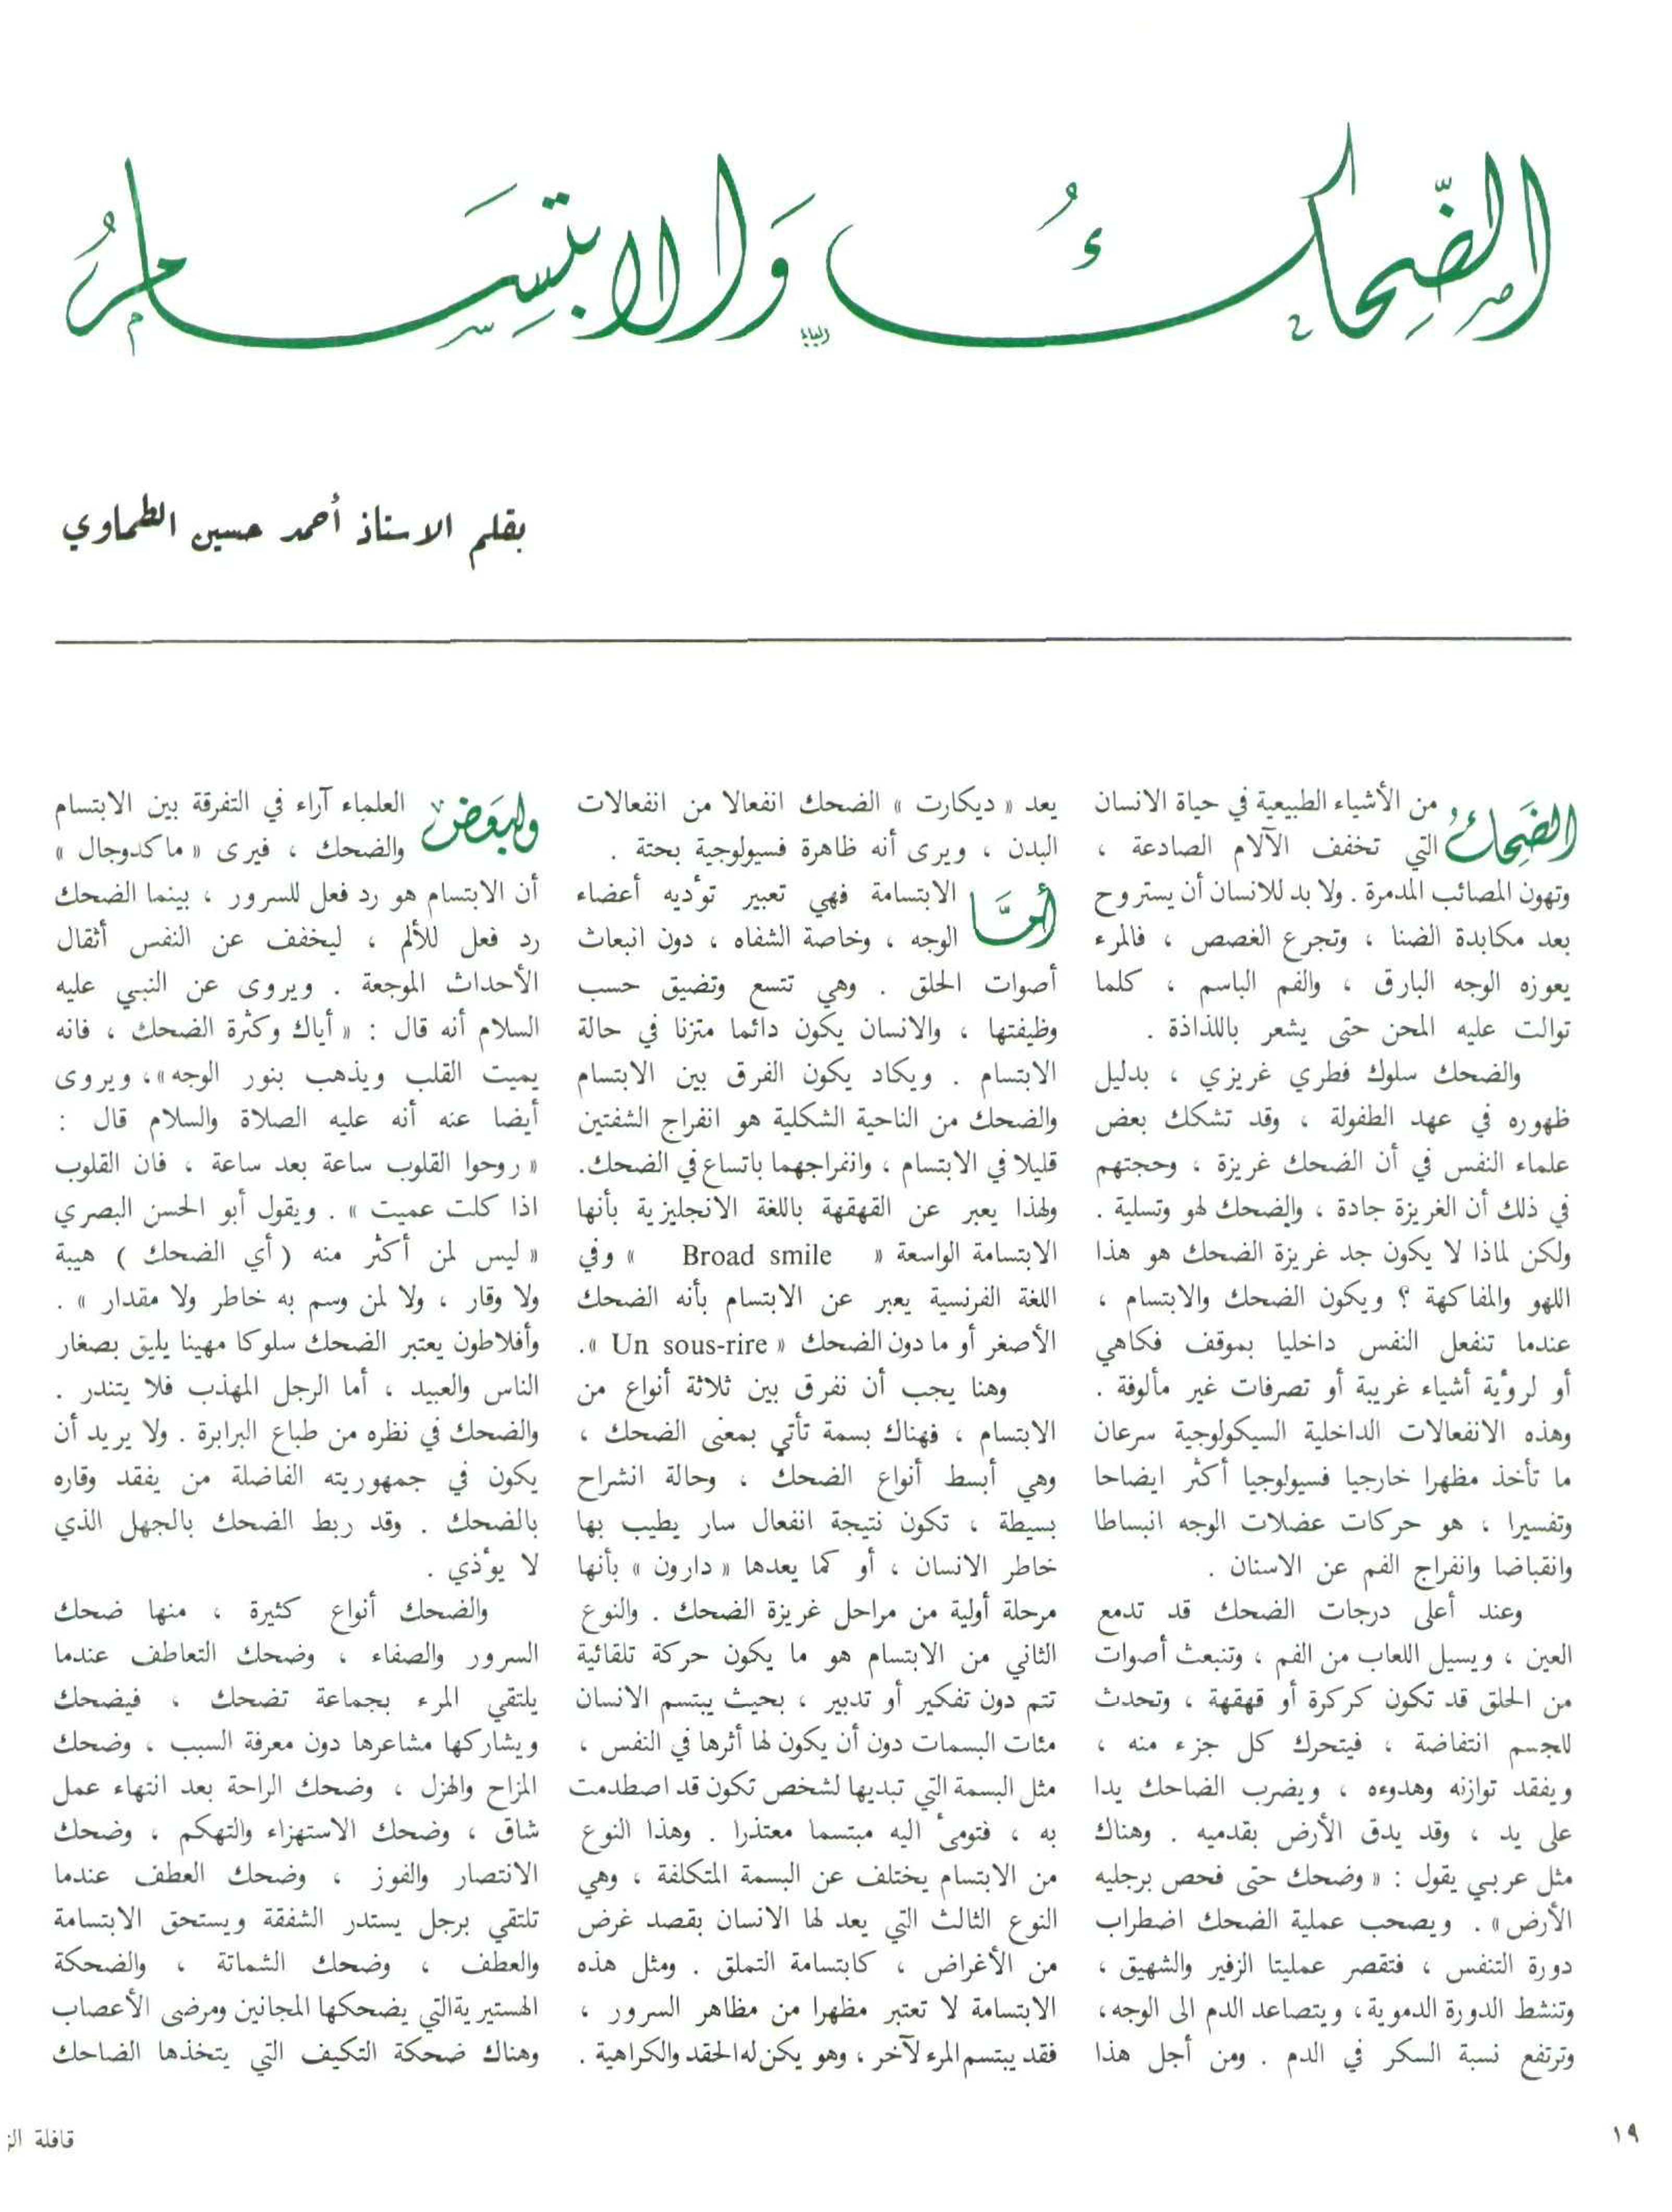 الضّحكُ وَالابتِسَامُ
بقلم الاستاذ أحمد حسين الطماوي
الضَحِكُ من الأشياء الطبيعية في حياة الانسان
التي تخفف الآلام الصادعة ،
وتهون المصائب المدمرة . ولا بد للانسان أن يستروح
بعد مكابدة الضنا ، وتجرع الغصص ، فالمرء
يعوزه الوجه البارق ، والفم الباسم ، كلما
توالت عليه المحن حتى يشعر باللذاذة .
والضحك سلوك فطري غريزي ، بدليل
ظهوره في عهد الطفولة ، وقد تشكك بعض
علماء النفس في أن الضحك غريزة ، وحجتهم
في ذلك أن الغريزة جادة ، والضحك لهو وتسلية .
ولكن لماذا لا يكون جد غريزة الضحك هو هذا
اللهو والمفاكهة ؟ ويكون الضحك والابتسام ،
عندما تنفعل النفس داخليا بموقف فكاهي
أو لروٴية أشياء غريبة أو تصرفات غير مألوفة .
وهذه الانفعالات الداخلية السيكولوجية سرعان
ما تأخذ مظهرا خارجيا فسيولوجيا أكثر ايضاحا
وتفسيرا ، هو حركات عضلات الوجه انبساطا
وانقباضا وانفراج الفم عن الاسنان .
وعند أعلى درجات الضحك قد تدمع
العين ، ويسيل اللعاب من الفم ، وتنبعث أصوات
من الحلق قد تكون كركرة أو قهقهة ، وتحدث
للجسم انتفاضة ، فيتحرك كل جزء منه ،
ويفقد توازنه وهدوءه ، ويضرب الضاحك يدا
على يد ، وقد يدق الأرض بقدميه . وهناك
مثل عربي يقول : « وضحك حتى فحص برجليه
الأرض» . ويصحب عملية الضحك اضطراب
دورة التنفس ، فتقصر عمليتا الزفير والشهيق ،
وتنشط الدورة الدموية، ويتصاعد الدم الى الوجه،
وترتفع نسبة السكر في الدم . ومن أجل هذا
يعد « ديكارت » الضحك انفعالا من انفعالات
البدن ، ويرى أنه ظاهرة فسيولوجية بحتة .
أمَّا الابتسامة فهي تعبير توٴديه أعضاء
الوجه ، وخاصة الشفاه ، دون انبعاث
أصوات الحلق . وهي تتسع وتضيق حسب
وظيفتها ، والانسان يكون دائما متزنا في حالة
الابتسام . ويكاد يكون الفرق بين الابتسام
والضحك من الناحية الشكلية هو انفراج الشفتين
قليلا في الابتسام ، وانفراجهما باتساع في الضحك.
ولهذا يعبر عن القهقهة باللغة الانجليزية بأنها
الابتسامة الواسعة « Broad smile » وفي
اللغة الفرنسية يعبر عن الابتسام بأنه الضحك
الأصغر أو ما دون الضحك « Un sous-rire ».
وهنا يجب أن نفرق بين ثلاثة أنواع من
الابتسام ، فهناك بسمة تأتي بمعنى الضحك ،
وهي أبسط أنواع الضحك ، وحالة انشراح
بسيطة ، تكون نتيجة انفعال سار يطيب بها
خاطر الانسان ، أو كما يعدها « دارون » بأنها
مرحلة أولية من مراحل غريزة الضحك . والنوع
الثاني من الابتسام هو ما يكون حركة تلقائية
تتم دون تفكير أو تدبير ، بحيث يبتسم الانسان
مئات البسمات دون أن يكون لها أثرها في النفس ،
مثل البسمة التي تبديها لشخص تكون قد اصطدمت
به ، فتومئ اليه مبتسما معتذرا . وهذا النوع
من الابتسام يختلف عن البسمة المتكلفة ، وهي
النوع الثالث التي يعد لها الانسان بقصد غرض
من الأغراض ، كابتسامة التملق . ومثل هذه
الابتسامة لا تعتبر مظهرا من مظاهر السرور ،
فقد يبتسم المرء لآخر ، وهو يكن له الحقد والكراهية .
ولبَعَض العلماء آراء في التفرقة بين الابتسام
والضحك ، فيرى « ماكدوجال »
أن الابتسام هو رد فعل للسرور ، بينما الضحك
رد فعل للألم ، ليخفف عن النفس أثقال
الأحداث الموجعة . ويروى عن النبي عليه
السلام أنه قال : « أياك وكثرة الضحك ، فانه
يميت القلب ويذهب بنور الوجه»، ويروى
أيضا عنه أنه عليه الصلاة والسلام قال :
« روحوا القلوب ساعة بعد ساعة ، فان القلوب
اذا كلت عميت » . ويقول أبو الحسن البصري
« ليس لمن أكثر منه ( أي الضحك ) هيبة
ولا وقار ، ولا لمن وسم به خاطر ولا مقدار » .
وأفلاطون يعتبر الضحك سلوكا مهينا يليق بصغار
الناس والعبيد ، أما الرجل المهذب فلا يتندر .
والضحك في نظره من طباع البرابرة . ولا يريد أن
يكون في جمهوريته الفاضلة من يفقد وقاره
بالضحك . وقد ربط الضحك بالجهل الذي
لا يوٴذي .
والضحك أنواع كثيرة ، منها ضحك
السرور والصفاء ، وضحك التعاطف عندما
يلتقي المرء بجماعة تضحك ، فيضحك
ويشاركها مشاعرها دون معرفة السبب ، وضحك
المزاح والهزل ، وضحك الراحة بعد انتهاء عمل
شاق ، وضحك الاستهزاء والتهكم ، وضحك
الانتصار والفوز ، وضحك العطف عندما
تلتقي برجل يستدر الشفقة ويستحق الابتسامة
والعطف ، وضحك الشماتة ، والضحكة
الهستيرية التي يضحكها المجانين ومرضى الأعصاب
وهناك ضحكة التكيف التي يتخذها الضاحك
١٩
قافلة الز